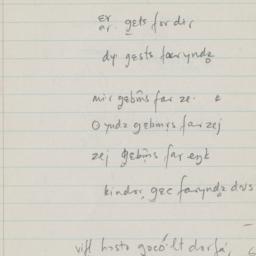 er gets for der
ar.
dy gests farynda
mir gebms far ze. e
O ynda gebmrs far zej
zej gebms far eyk
kindar, gec farynda das
vifl hosto gocólt dorfá,